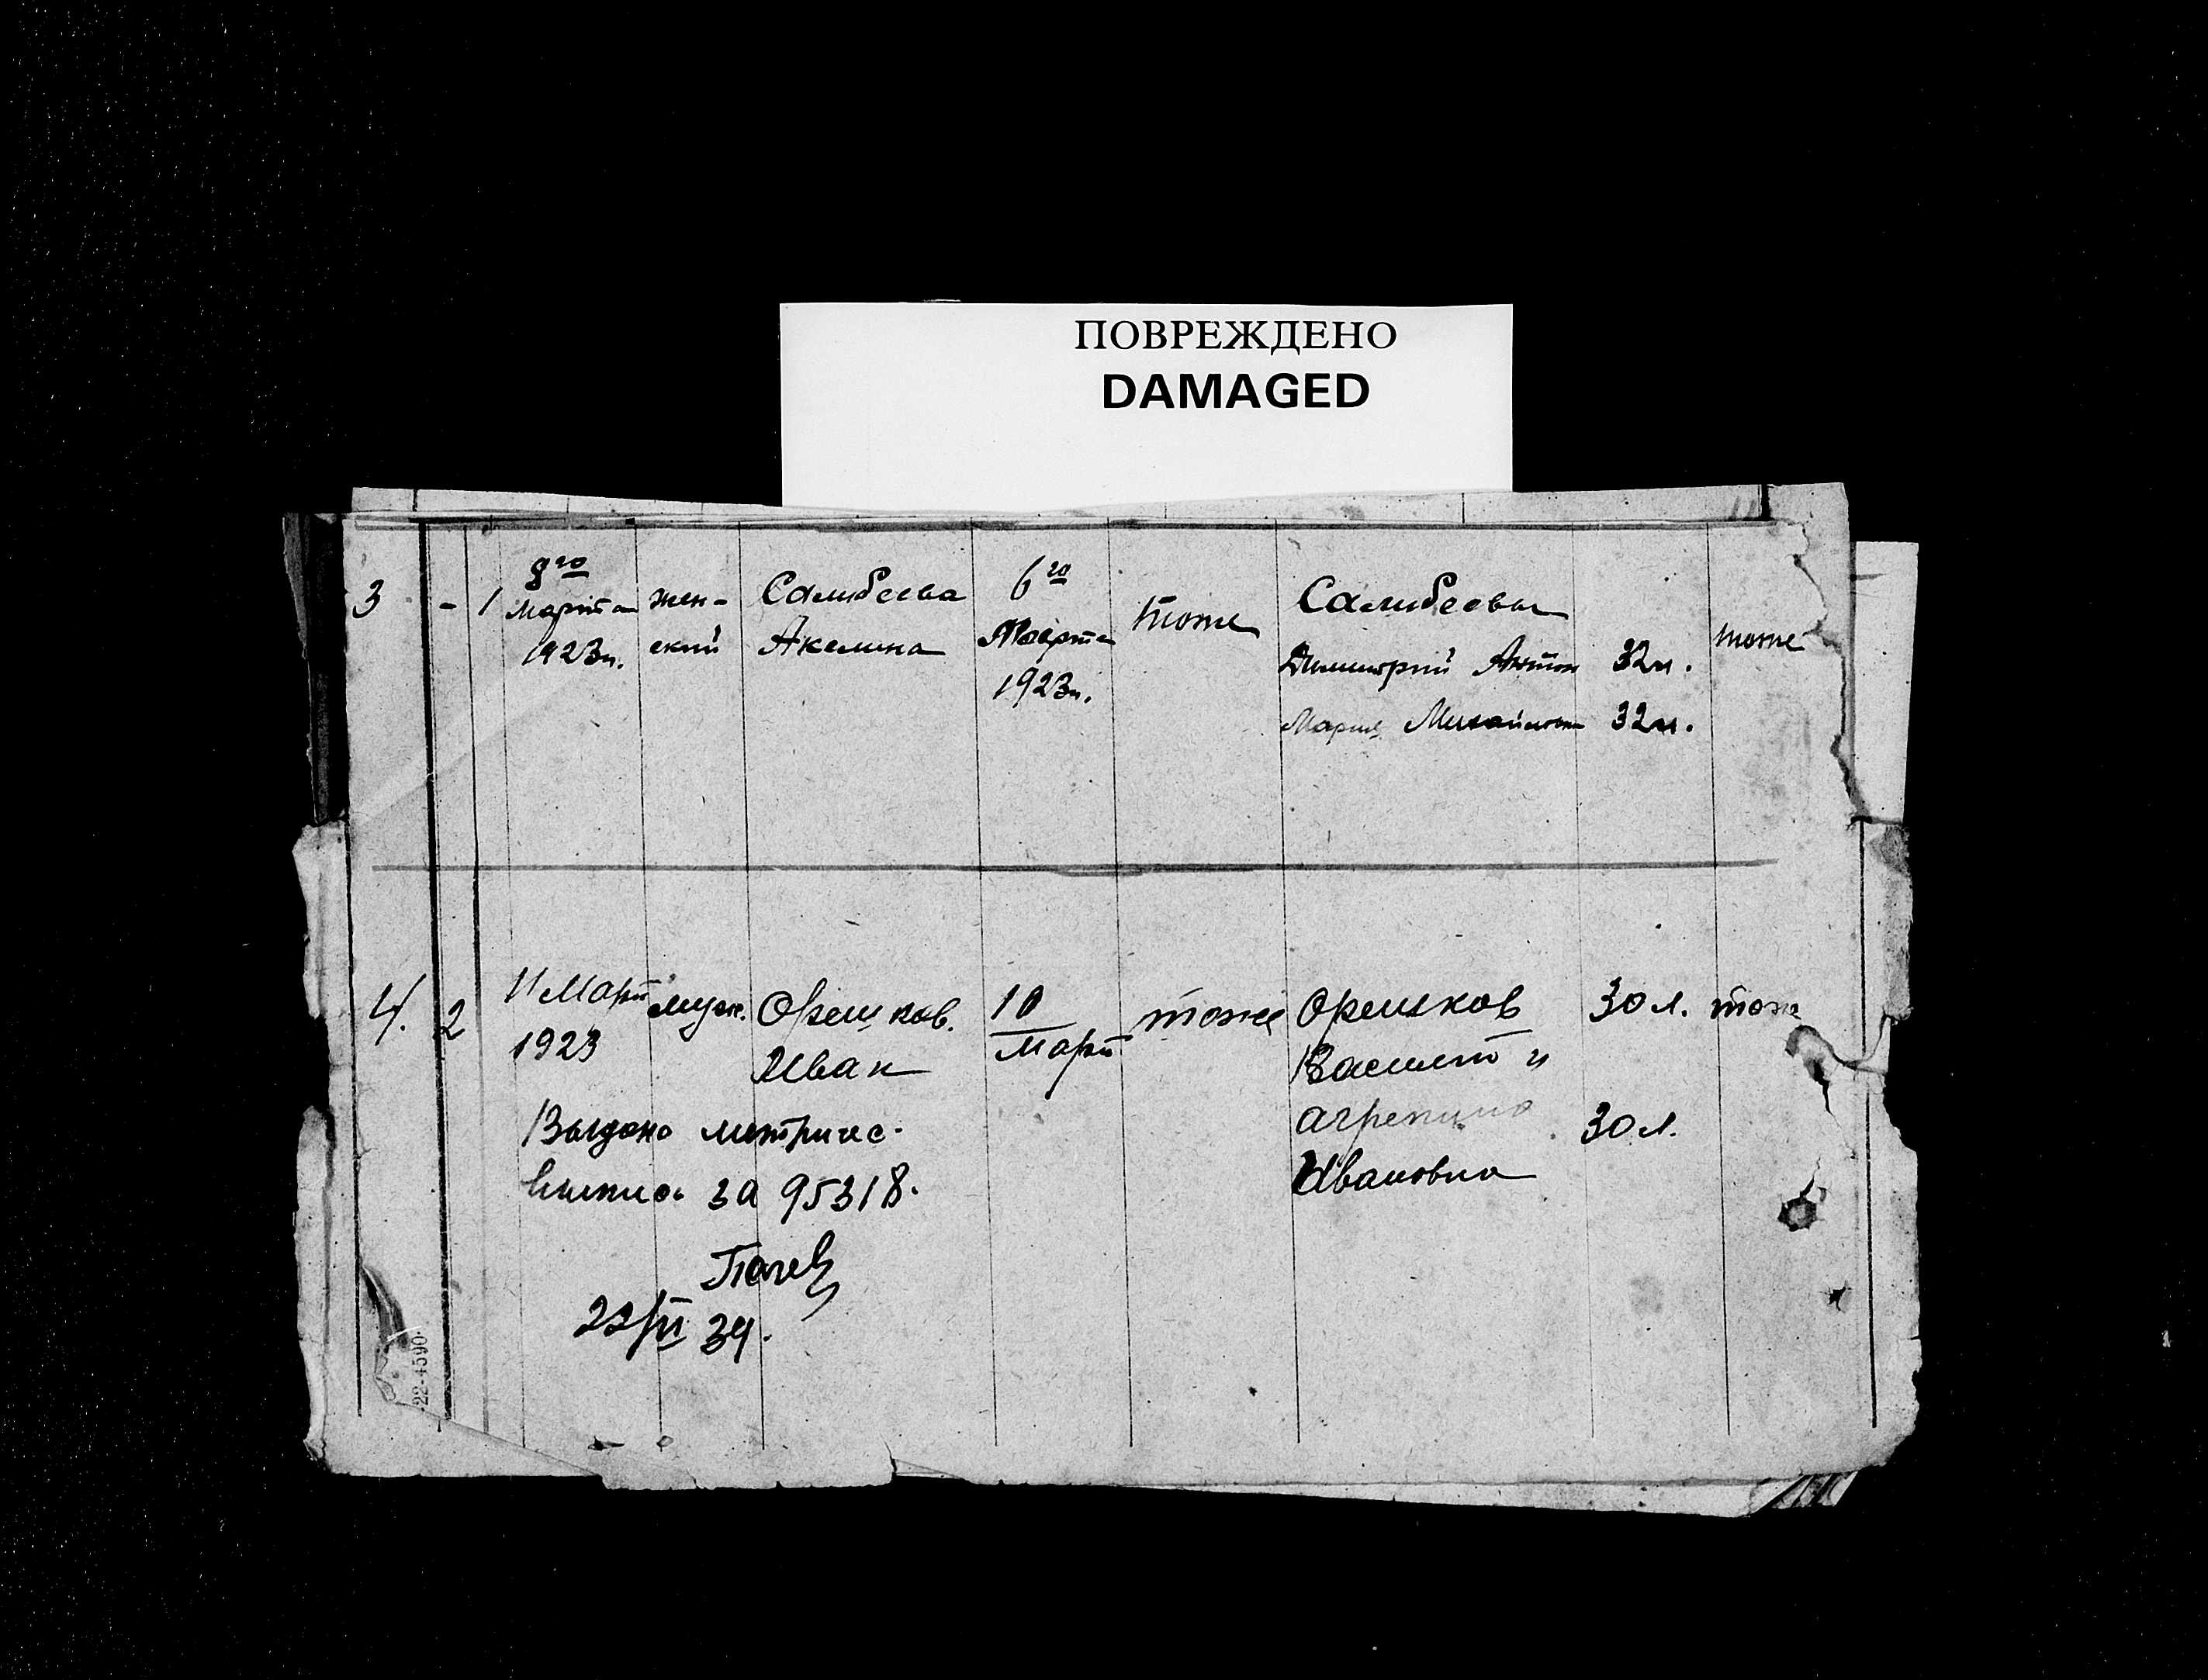 ПОВРЕЖДЕНО
DAMAGED
3 - 1 8го Марта 1923г. жен-
ский
Салибеева
Акелина
6го
Марта
1923г.
тоже
Салибеевы
Димитрий Антон 32л.
Мария Михайловн 32л.
тоже
4. 2 11 Март
1923
муж.
Орешков.
Иван
10
Март
тоже
Орешков 30 л.
Василий и
Агрепина 30 л.
Ивановна
тоже
Выдана метричес.
выпись за 95318.
22/VI 34.
22-4590